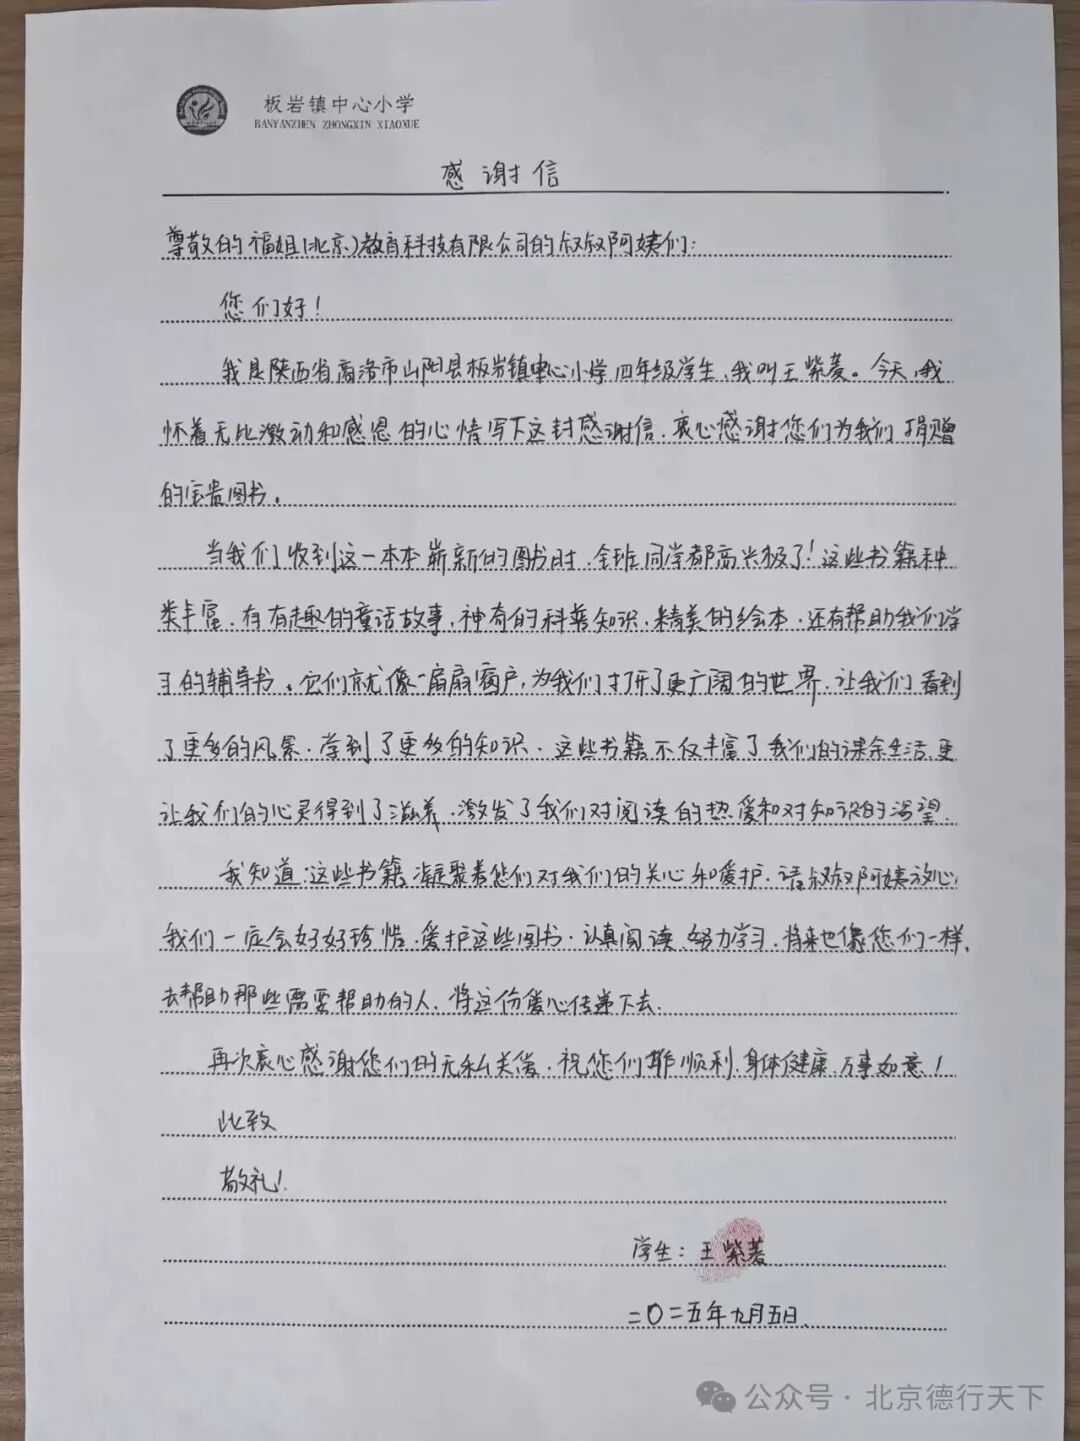 板岩镇中心小学
BANYANZHEN ZHONGXIN XIAOXUE
感谢信
尊敬的福姐(北京)教育科技有限公司的叔叔阿姨们:
您们好!
我是陕西省商洛市山阳县板岩镇中心小学四年级学生,我叫王紫菱。今天,我
怀着无比激动和感恩的心情写下这封感谢信,衷心感谢您们为我们捐赠
的宝贵图书。
当我们收到这一本本崭新的图书时,全班同学都高兴极了!这些书籍种
类丰富,有有趣的童话故事,神奇的科普知识,精美的绘本,还有帮助我们学
习的辅导书。它们就像一扇扇窗户,为我们打开了更广阔的世界,让我们看到
了更多的风景,学到了更多的知识。这些书籍不仅丰富了我们的课余生活,更
让我们的心灵得到了滋养,激发了我们对阅读的热爱和对知识的渴望。
我知道:这些书籍凝聚着您们对我们的关心和爱护,请叔叔阿姨放心,
我们一定会好好珍惜,爱护这些图书,认真阅读、努力学习,将来也像您们一样,
去帮助那些需要帮助的人,将这份爱心传递下去。
再次衷心感谢您们的无私关爱,祝您们 顺利,身体健康,万事如意!
此致
敬礼!
学生:王紫菱
二〇二五年九月五日
公众号·北京德行天下